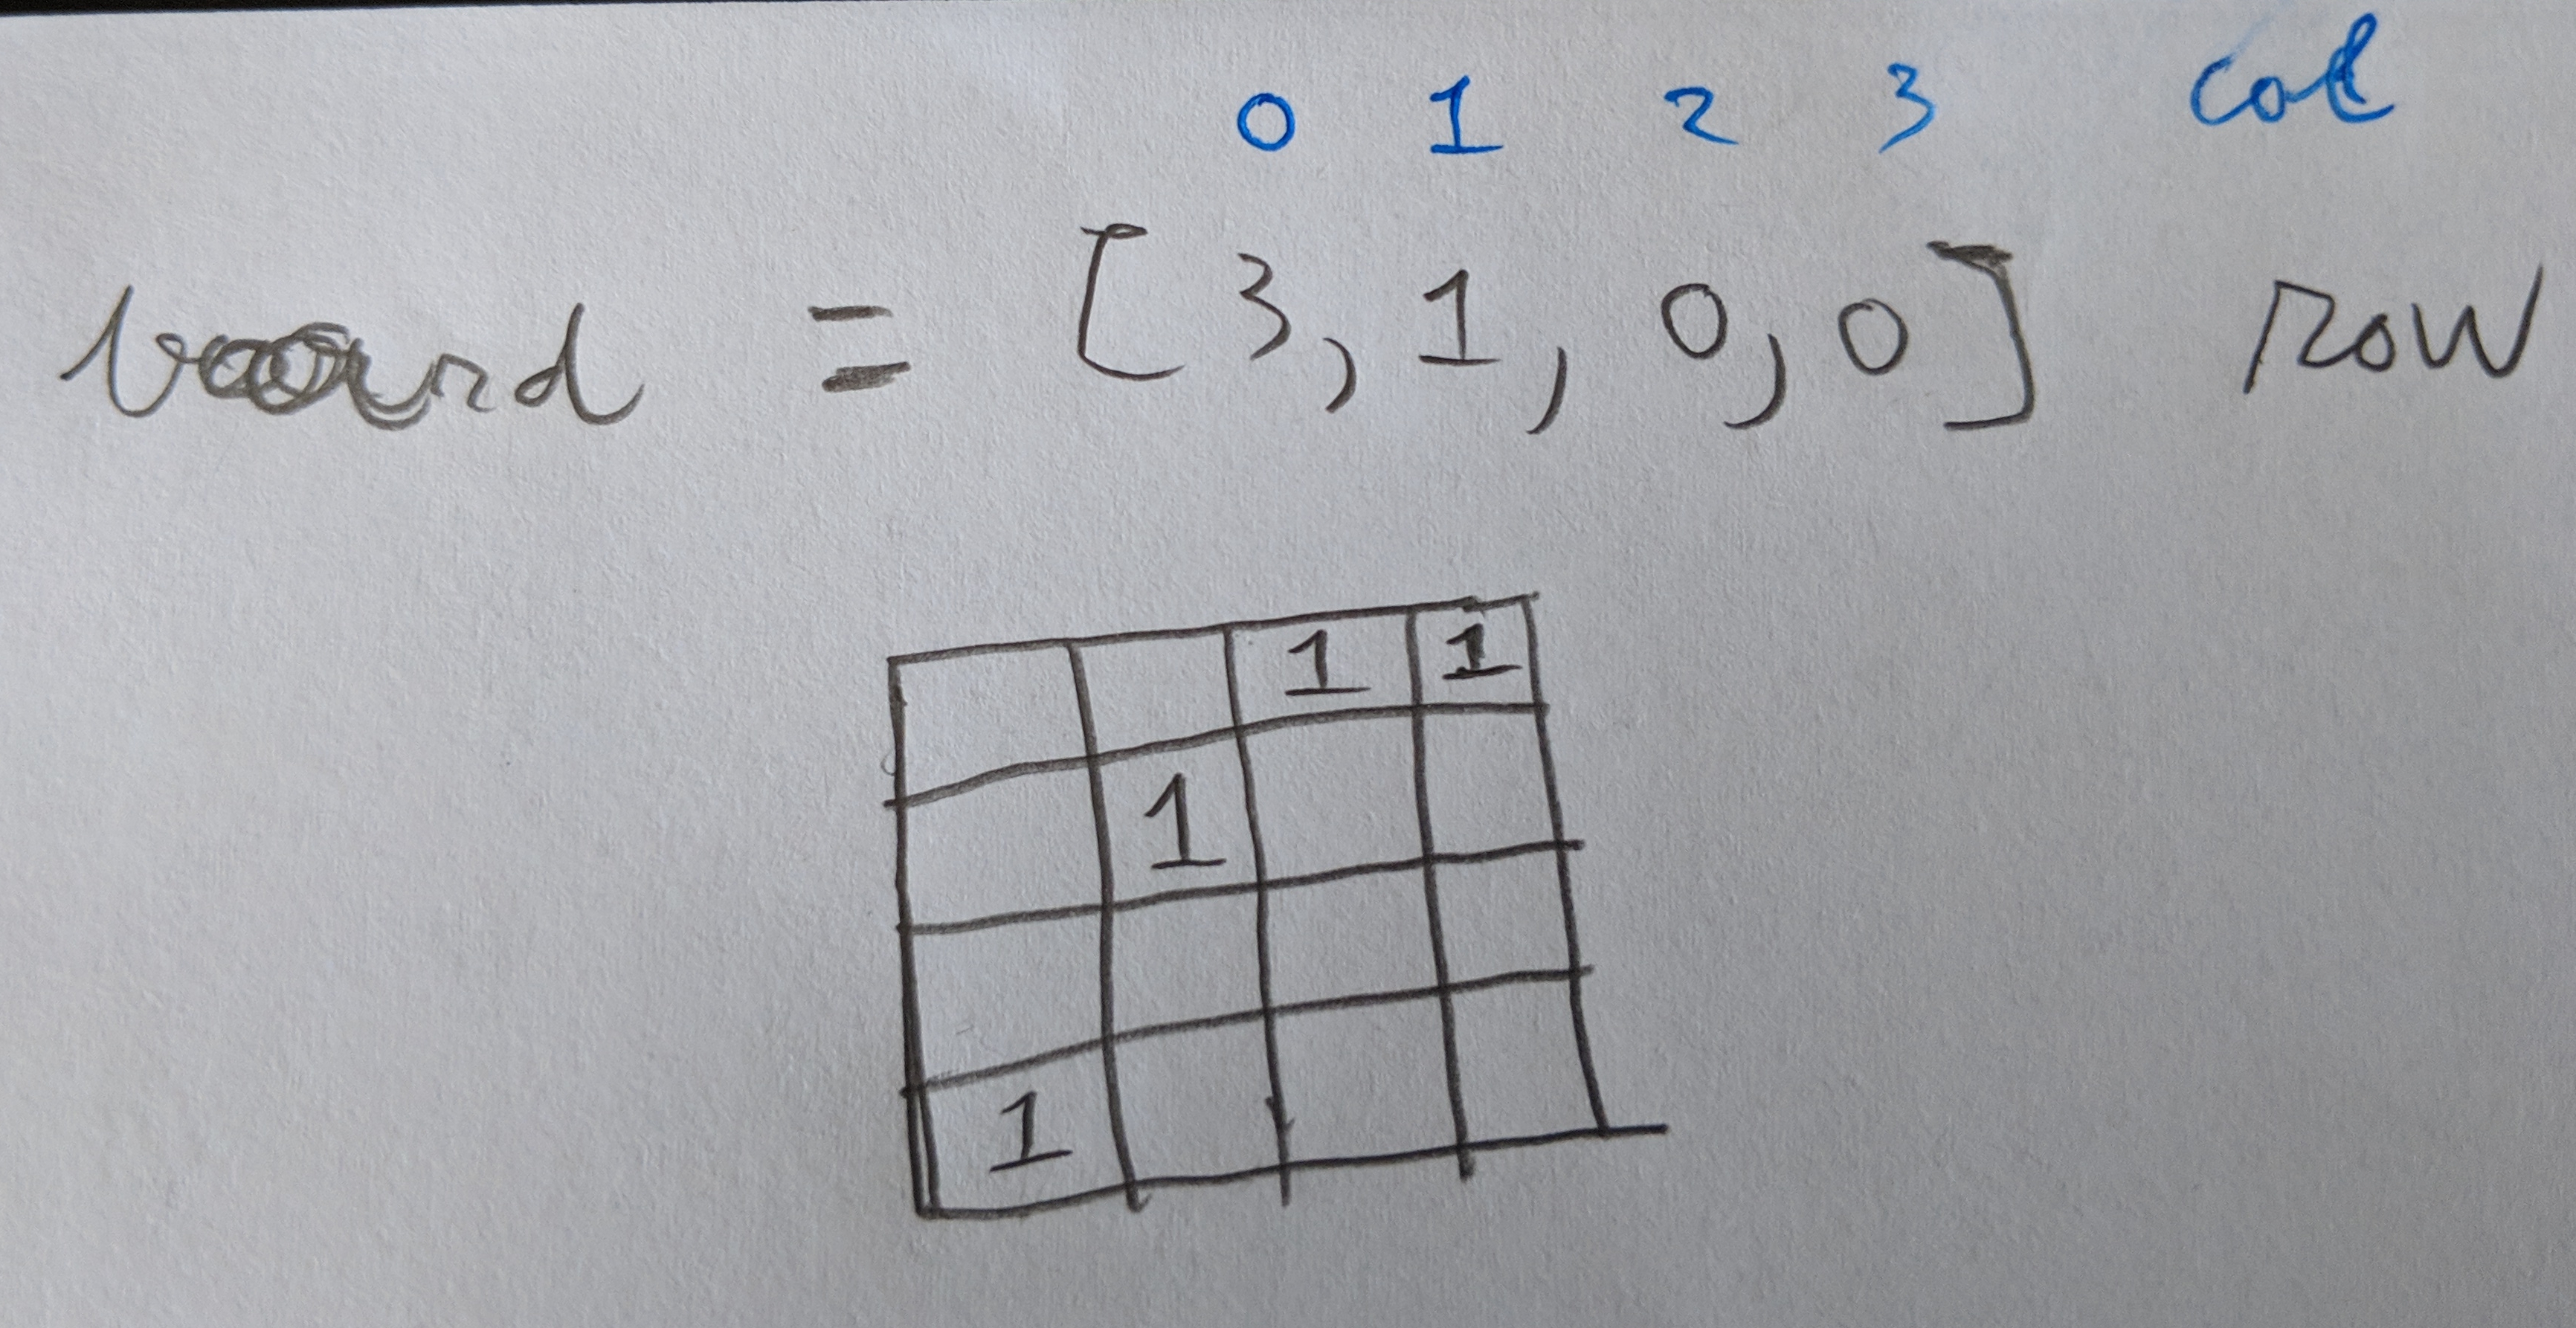 0 1 2 3 col
board = [3, 1, 0, 0] row
1 1
1
1